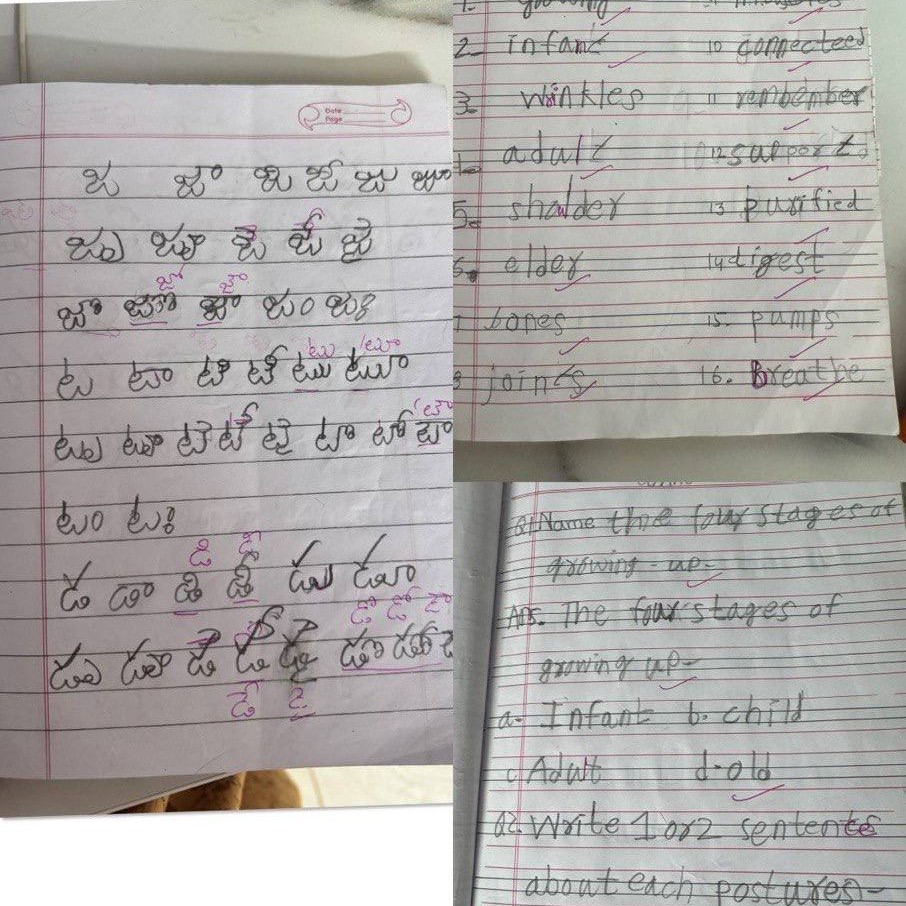 Date
Page
జ జా జి జీ జు జూ
జృ జౄ జె జే జై
జొ
జం జః
ట టా టి టీ
టు టూ
టృ టౄ టె టే టై టొ టో
టం టః
డ డా డి డీ డు డూ
డృ డౄ డె
growing
2- infant
3- Wrinkles
adult
5- shalder
6. elder
bones
joints
10 connecteed
11 remember
12 support
13 purified
14 digest
15. pumps
16. Breathe
Q1 Name the four stages of
growing-up-
Ans. The four stages of
growing up-
a- Infant b. child
c. Adult d-old
Q2. Write 1 or 2 sentences
about each postures-